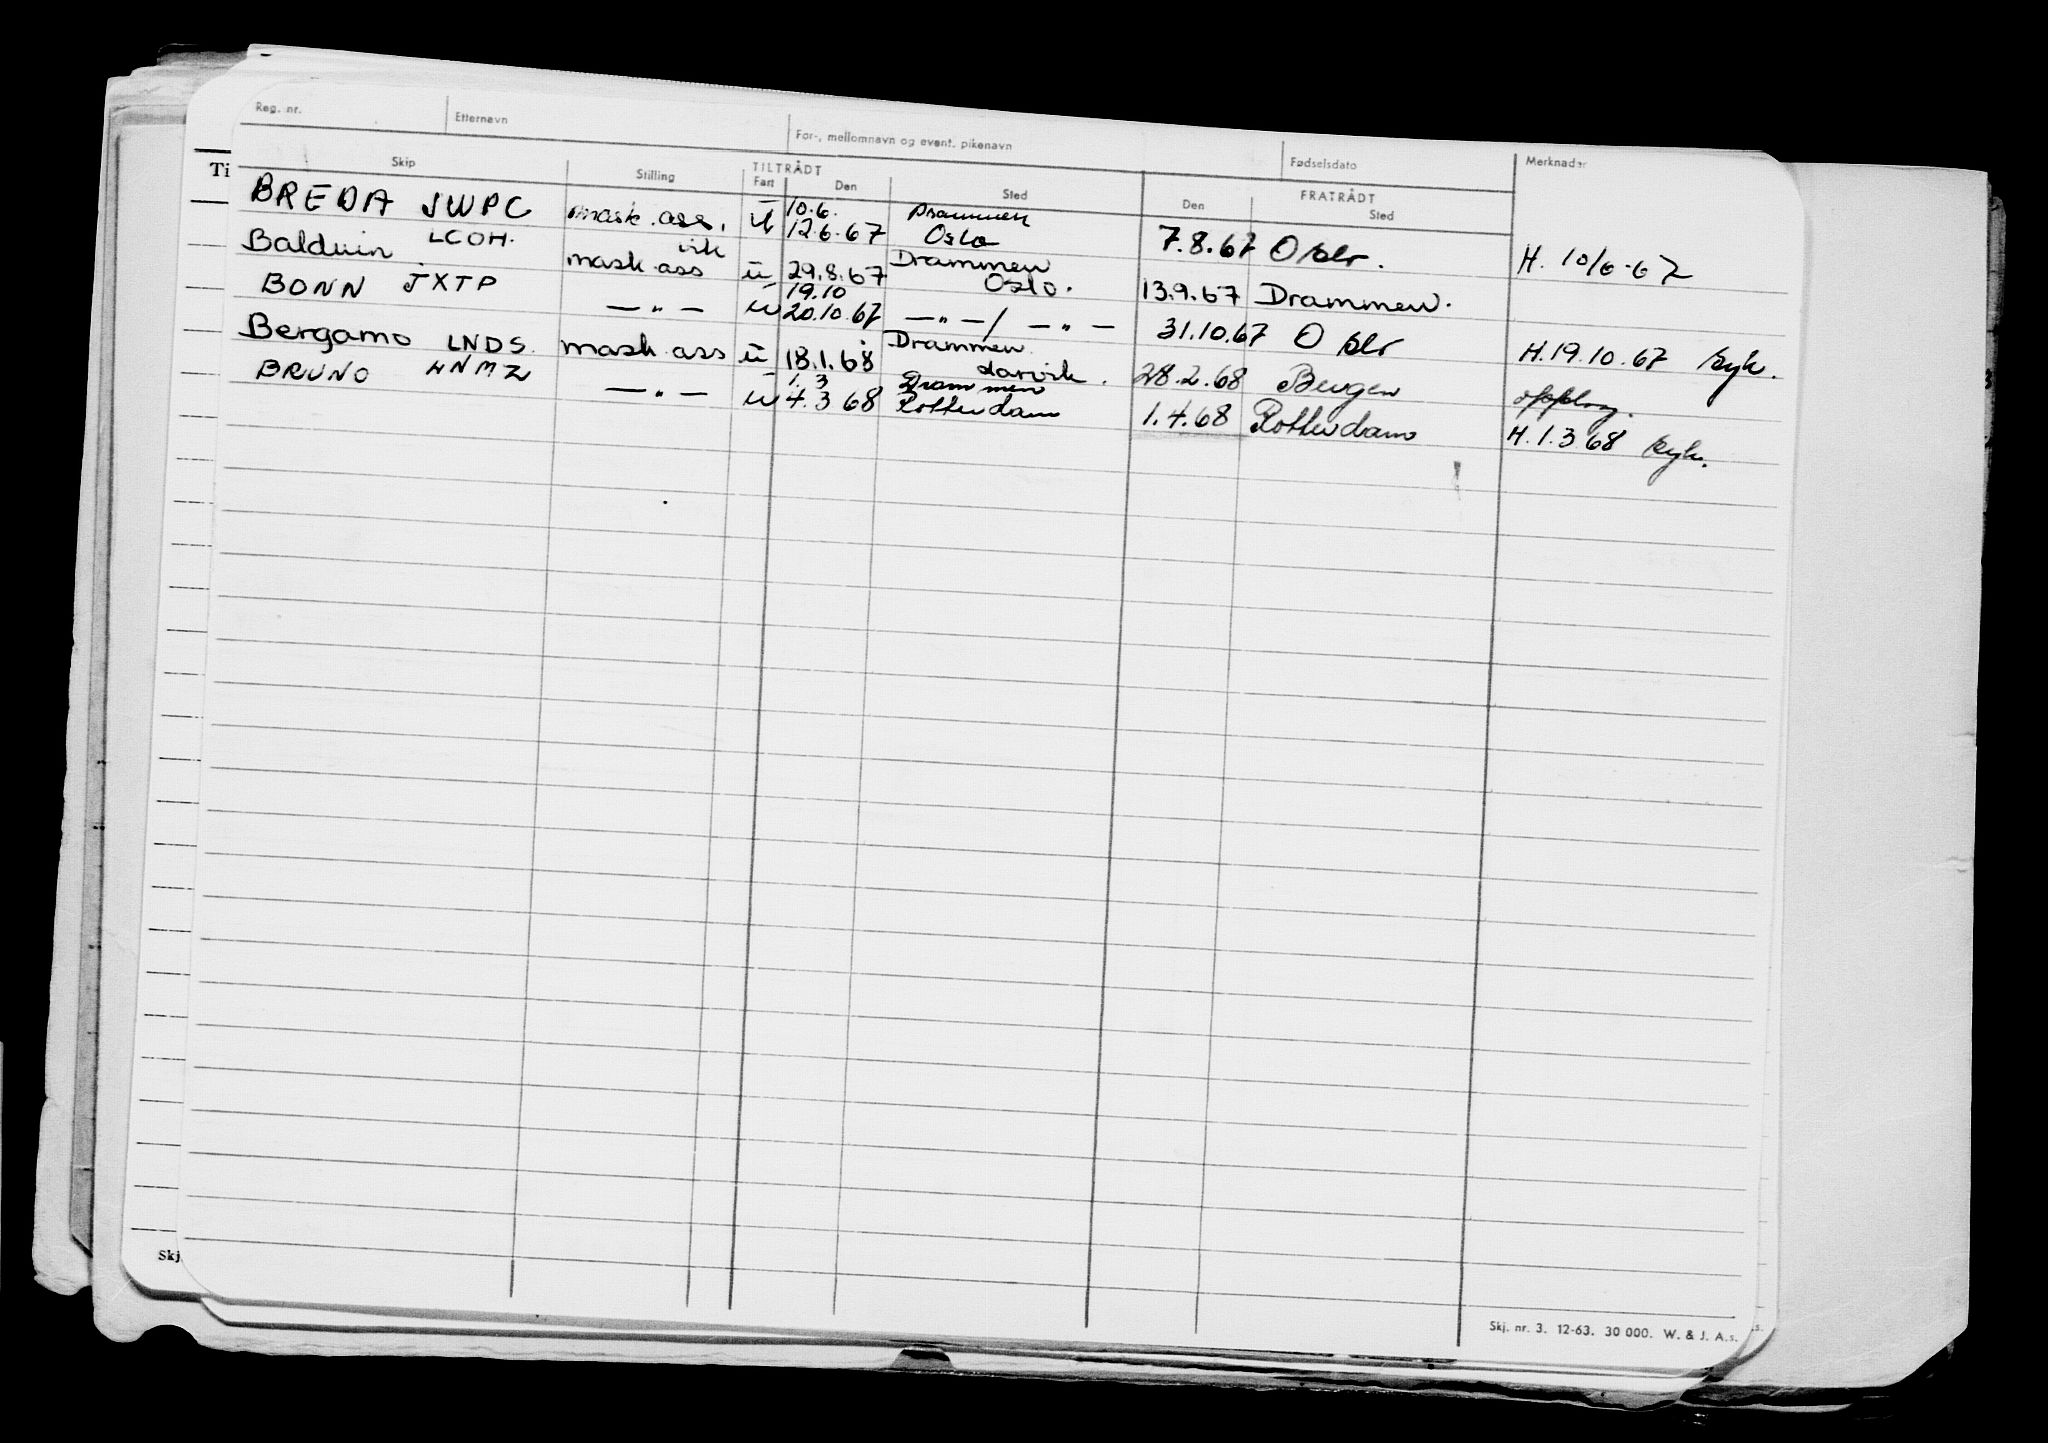 Reg. nr. Etternavn For-, mellomnavn og event. pikenavn Fødselsdato Merknader
Ti
Skip Stilling TILTRÅDT FRATRÅDT
Fart Den Sted Den Sted
BREDA JWPC mask. ass. u 10.6. 12.6.67 Drammen Oslo 7.8.67 Oslo. H. 10/6-67
Balduin LCOH. vik mask. ass u 29.8.67 Drammen Oslo. 13.9.67 Drammen.
BONN JXTP — " — u 19.10 20.10.67 — " — / — " — 31.10.67 Oslo H.19.10.67 syk.
Bergamo LNDS. mask. ass u 18.1.68 Drammen Larvik. 28.2.68 Bergen opplag.
BRUNO — " — u 1.3 4.3 68 Drammen Rotterdam 1.4.68 Rotterdam H.1.3 68 syk.
Skj.
Skj. nr. 3. 12-63. 30 000. W. & J. A.s.